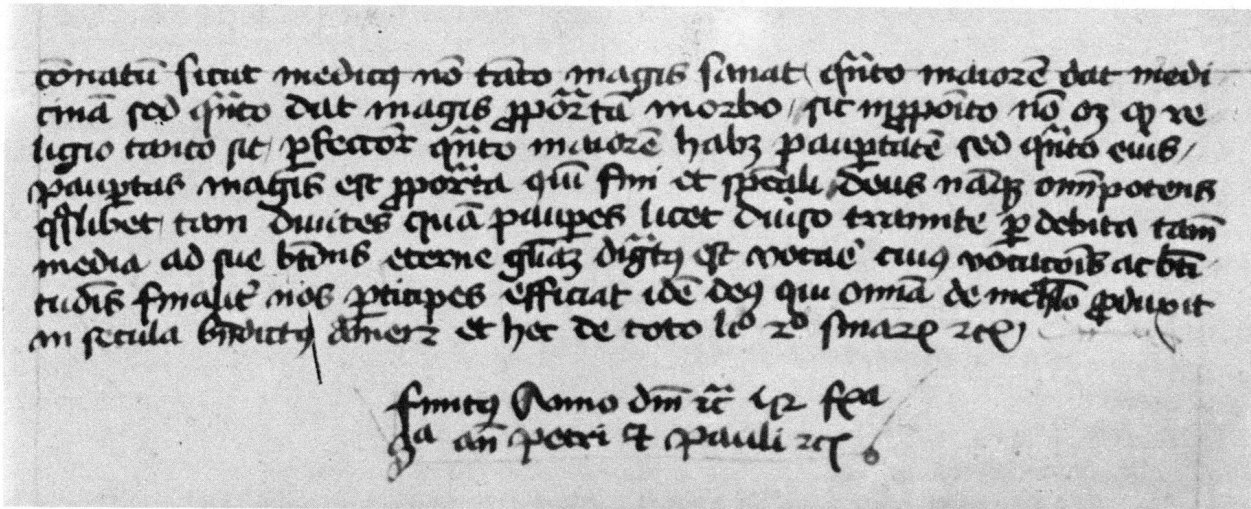 conatū sicut medicꝯ nō tāto magis sanat qn̄to maiorē dat medi
cinā sed qn̄to dat magis ꝓpor̄tā morbo / sic in ꝓpōito nō oꝫ ꝙ re
ligio tanto sit ꝑfectior qn̄to maiorē habꝫ pauꝑtatē sed qn̄to eius /
pauꝑtas magis est ꝓpor̄ta fini et sp̄ali deus nāqꝫ omīpotens
qͣslibet tam diuites quā pauꝑes licet diuiso tramite ꝑ debita tam̄
media ad sue bt̄dīnis eterne gl̄iaꝫ dignat̄ꝯ est uocare cuiꝯ uocatōis ac bt̄i
tudīs finalit̄ nos ꝑticipes efficiat idē deꝯ qui om̄ia de nichilo ꝓduxit
in secula bn̄dictꝯ Amen et hec de toto lº 2º smaꝝ ⁊cꝭ
finitꝯ Anno dm̄i fͥa
3ª an̄ petri et pauli ⁊cꝭ